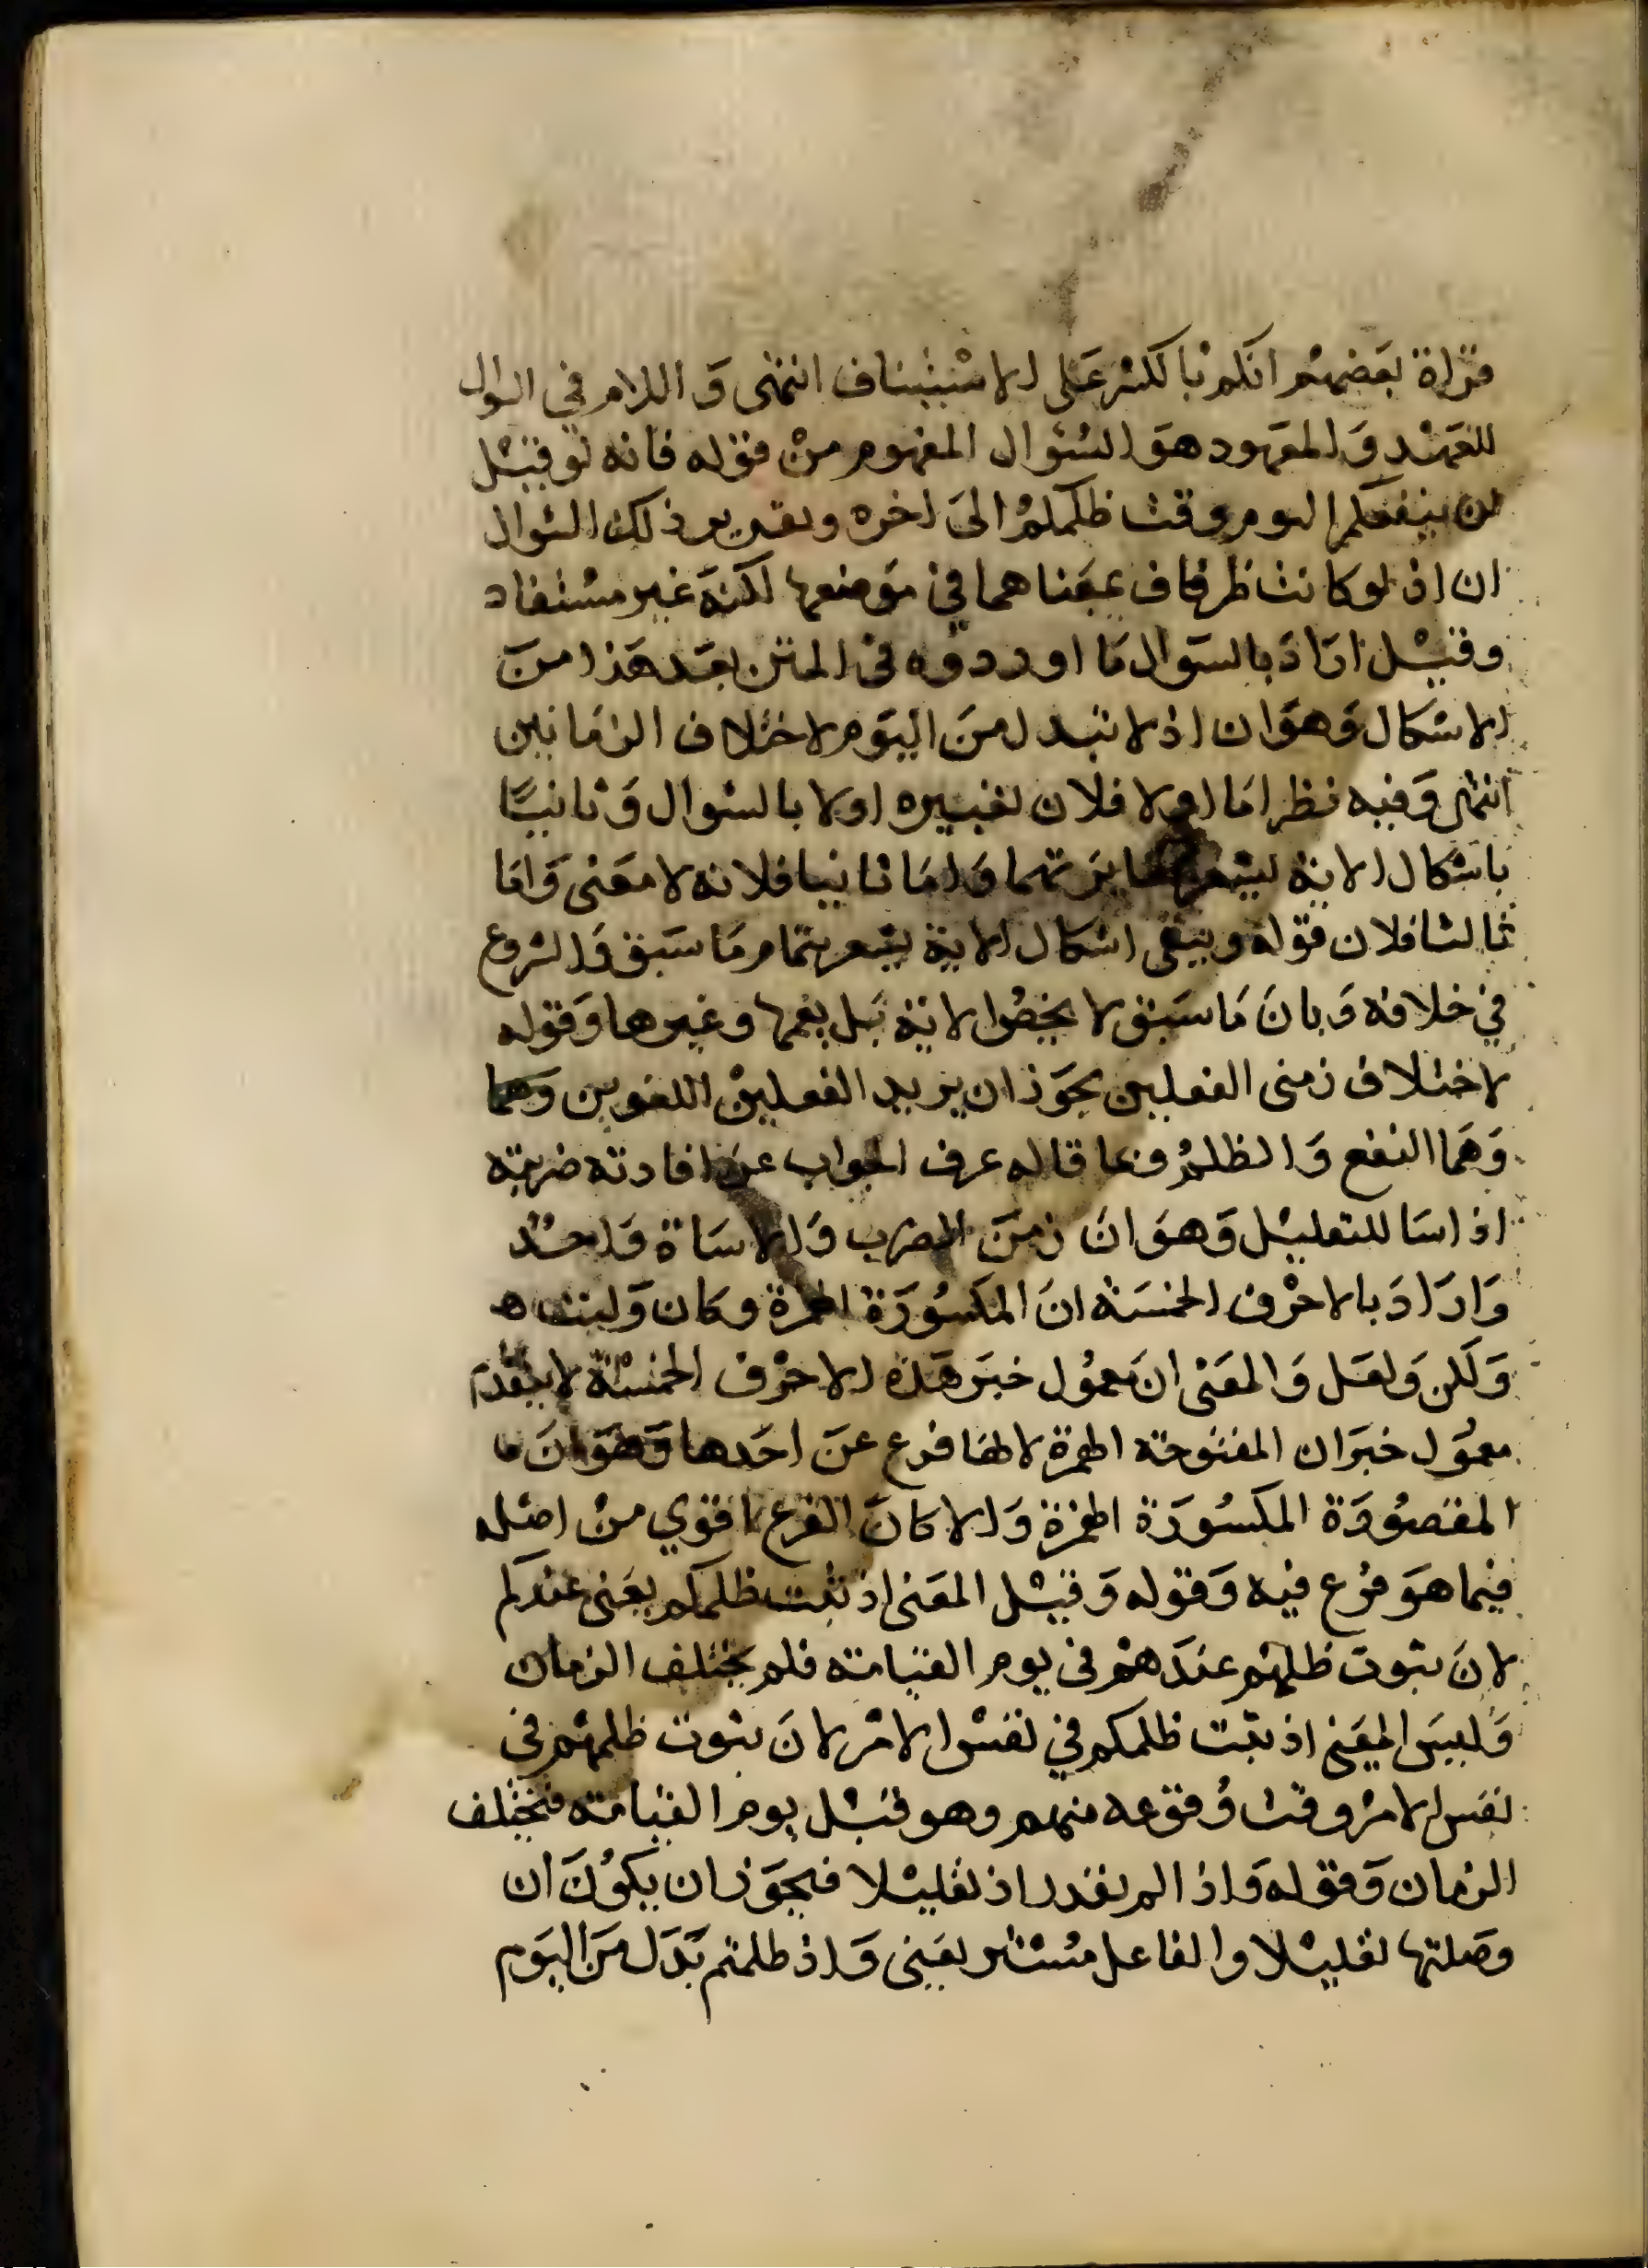 قراة بعضهم انكم بالكسر على الاستيناف انتهى و اللام في السوال
للعهد و المعهود هو السوال المفهوم من قوله فانه لو قيل
لن ينفعكم اليوم وقت ظلمكم الى اخره وتقرير ذلك السوال
ان اذ لو كانت ظرفا في موضعها لكنه غير مستفاد
وقيل اراد بالسوال ما اوردوه في المتن بعد هذا من
الاشكال وهو ان اذ لا تبدل من اليوم لاختلاف الزمانين
انتهى وفيه نظر اما اولا فلان تعبيره اولا بالسوال و ثانيا
باشكال الاية يشعر بمغايرتهما واما ثانيا فلانه لا معنى واما
ثالثا فلان قوله ويبقى اشكال الاية يشعر بتمام ما سبق والشروع
في خلافه وبان ما سبق لا يخص الاية بل يعمها وغيرها وقوله
لاختلاف زمني الفعلين يجوز ان يريد الفعلين اللغوين وهما
وهما النفع والظلم وبما قاله عرف الجواب عن افادته ضربته
اذ اسا للتعليل وهو ان زمن الضرب والاساة واحد
واراد بالاحرف الخمسة ان المكسورة الهمزة وكان وليت
ولكن ولعل والمعنى ان معمول خبر هذه الاحرف الخمسة لا يتقدم
معمول خبر ان المفتوحة الهمزة لانها فرع عن احدها وهو ان
المقصورة المكسورة الهمزة والا كان الفرع اقوي من اصله
فيما هو فرع فيه وقوله وقيل المعنى اذ ثبت ظلمكم يعنى عندكم
لان ثبوت ظلمهم عندهم في يوم القيامة فلم يختلف الزمان
وليس المعنى اذ ثبت ظلمكم في نفس الامر لان ثبوت ظلمهم في
نفس الامر وقت وقوعه منهم وهو قبل يوم القيامة فيختلف
الزمان وقوله واذا لم تقدر اذ تعليلا فيجوز ان يكون ان
وصلتها تعليلا والفاعل مستتر يعنى واذ ظلمتم بدل من اليوم